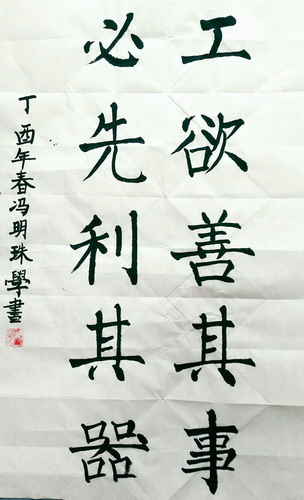 工欲善其事
必先利其器
丁酉年春冯明珠學書